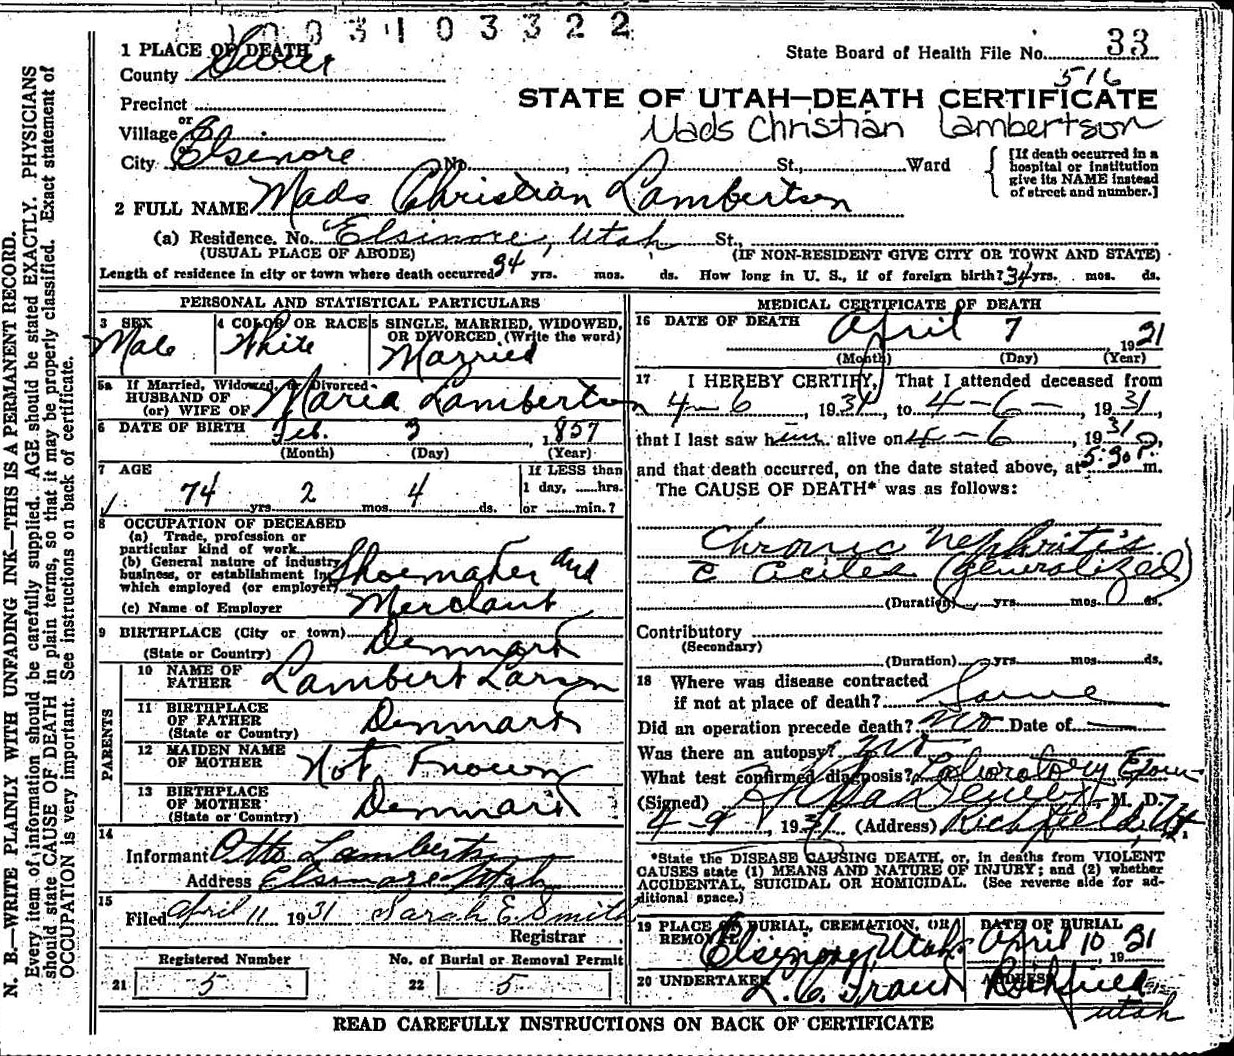 003103322
1 PLACE OF DEATH
County Sevier
State Board of Health File No. 33
516
Precinct
STATE OF UTAH—DEATH CERTIFICATE
or
Village
Mads Christian Lambertson
City Elsinore No. , St., Ward
[If death occurred in a hospital or institution give its NAME instead of street and number.]
2 FULL NAME Mads Christian Lambertsen
(a) Residence. No. Elsinore, Utah St.,
(USUAL PLACE OF ABODE) (IF NON-RESIDENT GIVE CITY OR TOWN AND STATE)
Length of residence in city or town where death occurred 34 yrs. mos. ds. How long in U. S., if of foreign birth? 34 yrs. mos. ds.
PERSONAL AND STATISTICAL PARTICULARS
3 SEX
Male
4 COLOR OR RACE
White
5 SINGLE, MARRIED, WIDOWED, OR DIVORCED (Write the word)
Married
5a If Married, Widowed, or Divorced
HUSBAND OF
(or) WIFE OF Maria Lambertsen
6 DATE OF BIRTH Feb. 3, 1857
(Month) (Day) (Year)
7 AGE
74 yrs. 2 mos. 4 ds.
If LESS than
1 day, hrs.
or min.?
8 OCCUPATION OF DECEASED
(a) Trade, profession or
particular kind of work
(b) General nature of industry
business, or establishment in
which employed (or employer) Shoemaker and
(c) Name of Employer Merchant
9 BIRTHPLACE (City or town) Denmark
(State or Country)
PARENTS
10 NAME OF
FATHER Lambert Larsen
11 BIRTHPLACE
OF FATHER Denmark
(State or Country)
12 MAIDEN NAME
OF MOTHER Not Known
13 BIRTHPLACE
OF MOTHER Denmark
(State or Country)
14
Informant Otto Lamberts
Address Elsinore Utah
15
Filed April 11 1931 Sarah E. Smith
Registrar
Registered Number
21 5
No. of Burial or Removal Permit
22 5
MEDICAL CERTIFICATE OF DEATH
16 DATE OF DEATH April 7 1931
(Month) (Day) (Year)
17 I HEREBY CERTIFY, That I attended deceased from
4-6, 1931, to 4-6-, 1931,
that I last saw him alive on 4-6, 1931,
and that death occurred, on the date stated above, at 5:30 P. m.
The CAUSE OF DEATH* was as follows:
Chronic Nephritis
(generalized)
(Duration) yrs. mos. ds.
Contributory
(Secondary)
(Duration) yrs. mos. ds.
18 Where was disease contracted
if not at place of death? Same
Did an operation precede death? No Date of
Was there an autopsy? no
What test confirmed diagnosis? Laboratory Exam
(Signed) M. D.
4-9, 1931 (Address) Richfield, Ut.
*State the DISEASE CAUSING DEATH, or, in deaths from VIOLENT
CAUSES state (1) MEANS AND NATURE OF INJURY; and (2) whether
ACCIDENTAL, SUICIDAL OR HOMICIDAL. (See reverse side for additional space.)
19 PLACE OF BURIAL, CREMATION, OR
REMOVAL
Elsinore, Utah
DATE OF BURIAL
April 10 1931
20 UNDERTAKER
ADDRESS
Richfield
Utah
READ CAREFULLY INSTRUCTIONS ON BACK OF CERTIFICATE
N. B.—WRITE PLAINLY WITH UNFADING INK—THIS IS A PERMANENT RECORD.
Every item of information should be carefully supplied. AGE should be stated EXACTLY. PHYSICIANS
should state CAUSE OF DEATH in plain terms, so that it may be properly classified. Exact statement of
OCCUPATION is very important. See instructions on back of certificate.